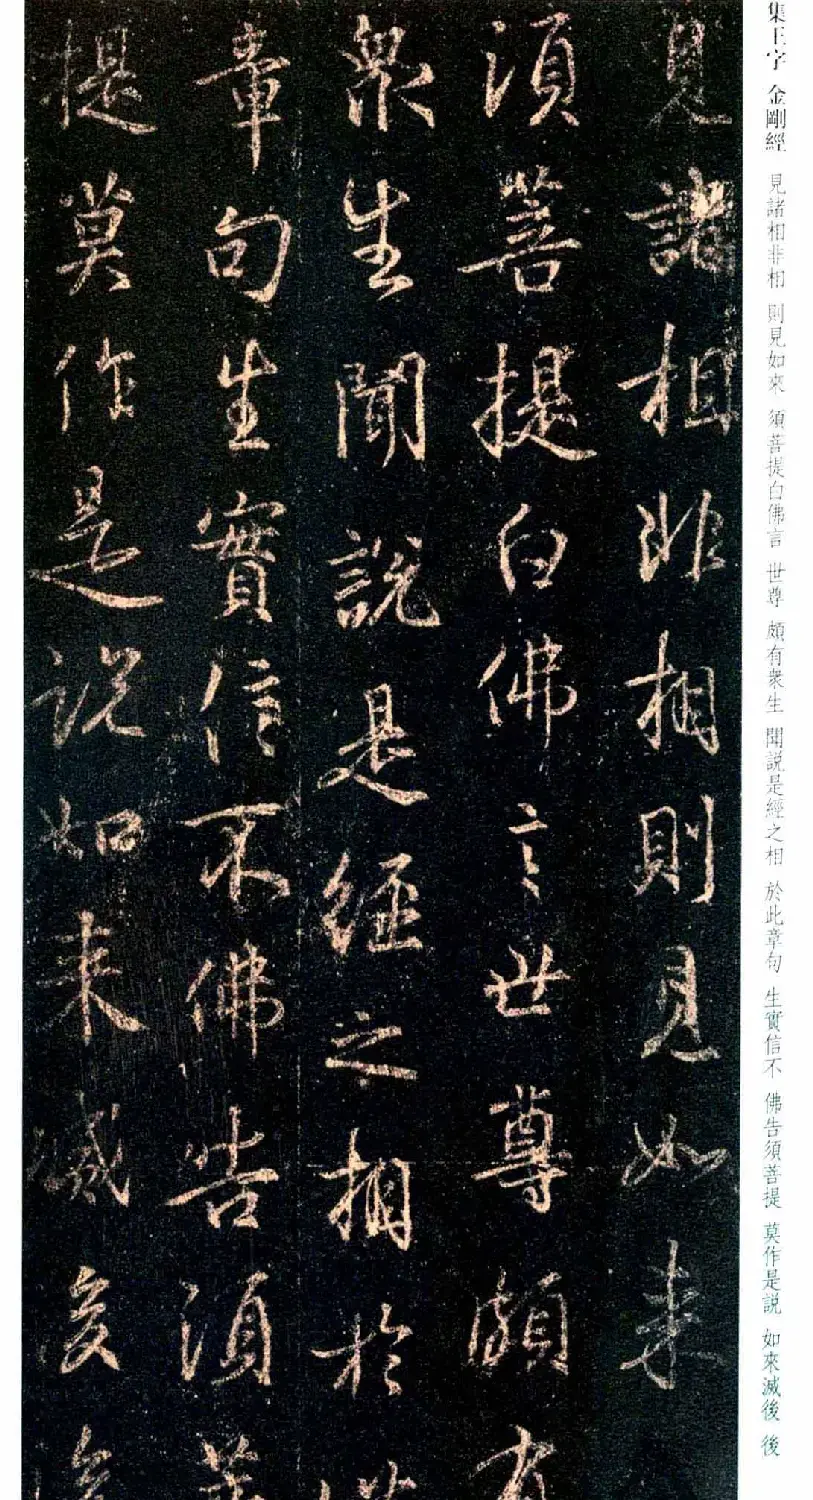 集王字 金剛經 見諸相非相 則見如來 須菩提白佛言 世尊 頗有衆生 聞説是經之相 於此章句 生實信不 佛告須菩提 莫作是説 如來滅後 後
見諸相非相則見如来
須菩提白佛言世尊頗有
衆生聞說是經之相於此
章句生實信不佛告須菩
提莫作是說如来滅後後